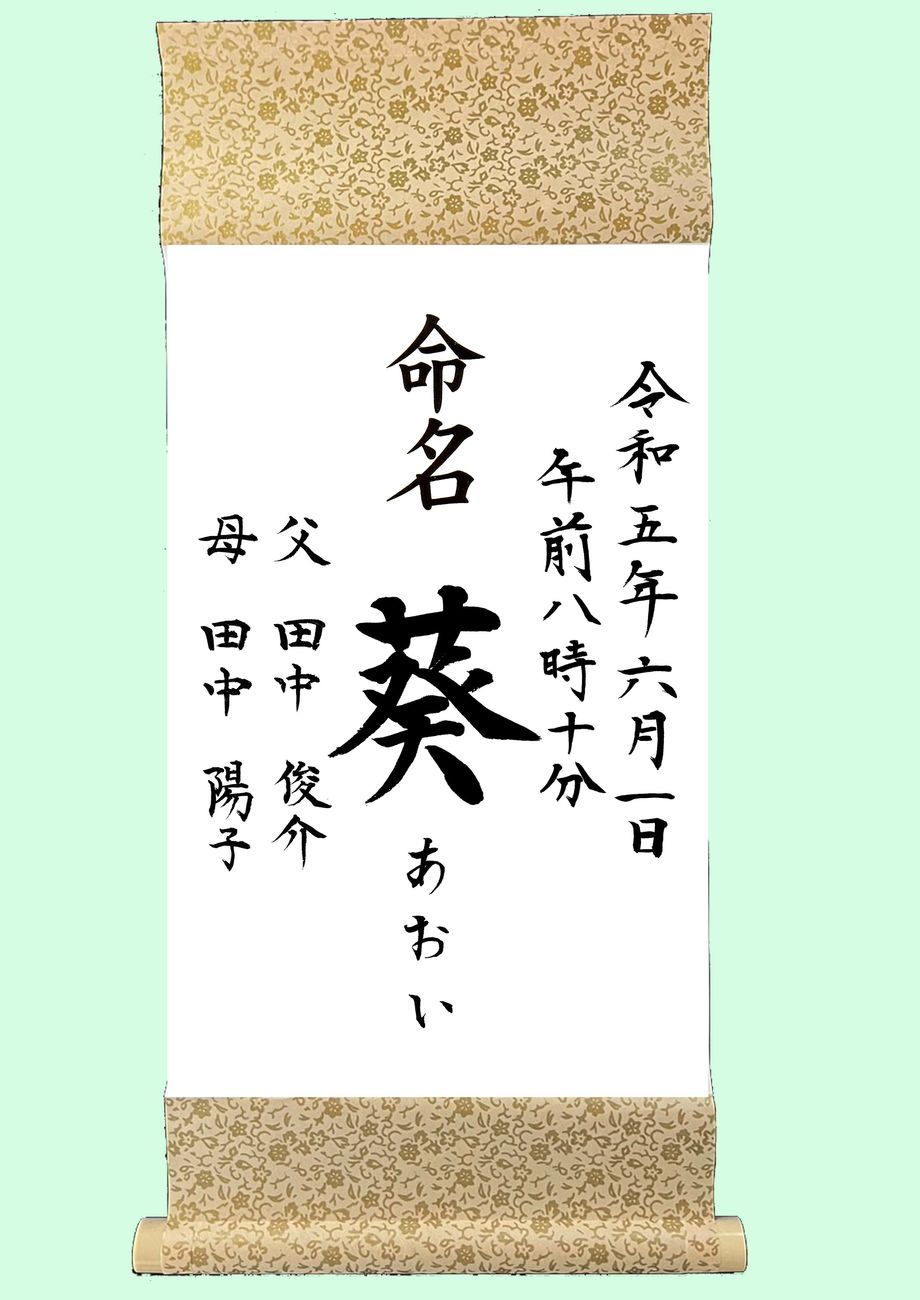 令和五年六月一日
午前八時十分
命名
葵
あおい
父 田中 俊介
母 田中 陽子